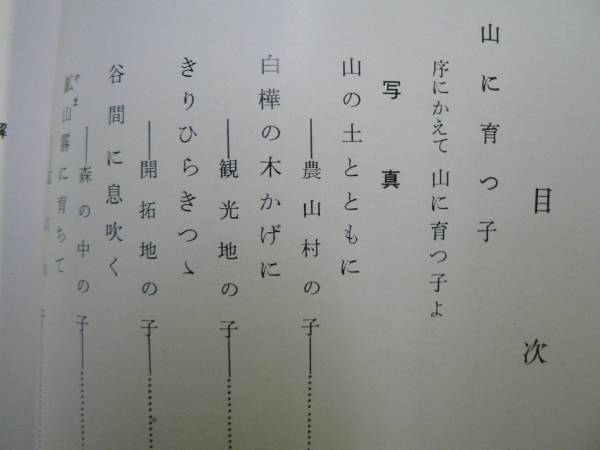 目次
山に育つ子
序にかえて 山に育つ子よ
写真
山の土とともに
――農山村の子――
白樺の木かげに
――観光地の子――
きりひらきつゝ
――開拓地の子――
谷間に息吹く
――森の中の子――
鉱山霧に育ちて
やま
の子